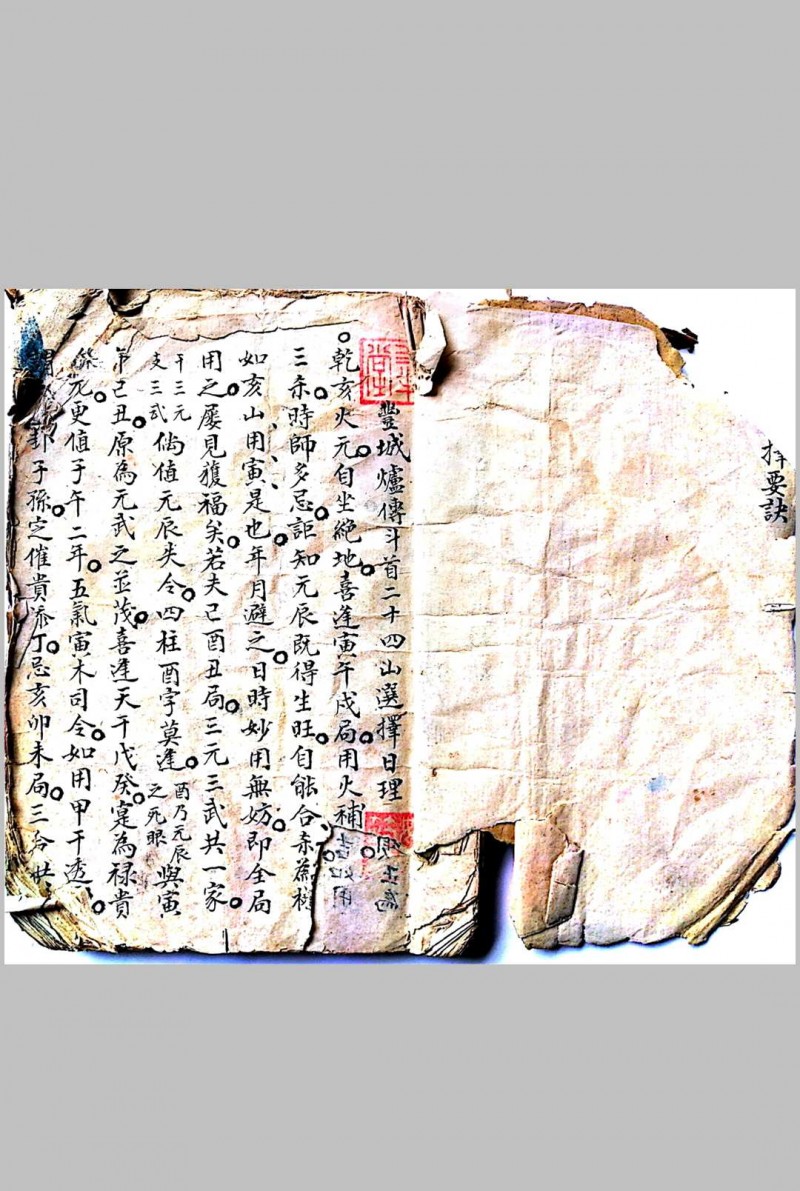 要訣
豐城爐傳斗首二十四山選擇日理
乾亥火元自坐絕地喜逢寅午戌局用火補
三奈時師多忌詎知元辰既得生旺自能合
如亥山用寅是也年月避之日時妙用無妨即全局
用之屢見獲福矣若夫己酉丑局三元三武共一家
干三元
支三武
倘值元辰失令四柱酉字莫逢
酉乃元辰
之死眼
與寅
第己丑原為元武之並茂喜逢天干戊癸寔為祿貴
死更值子午二年五氣寅木司令如用甲干透
子孫定催貴添丁忌亥卯未局三合